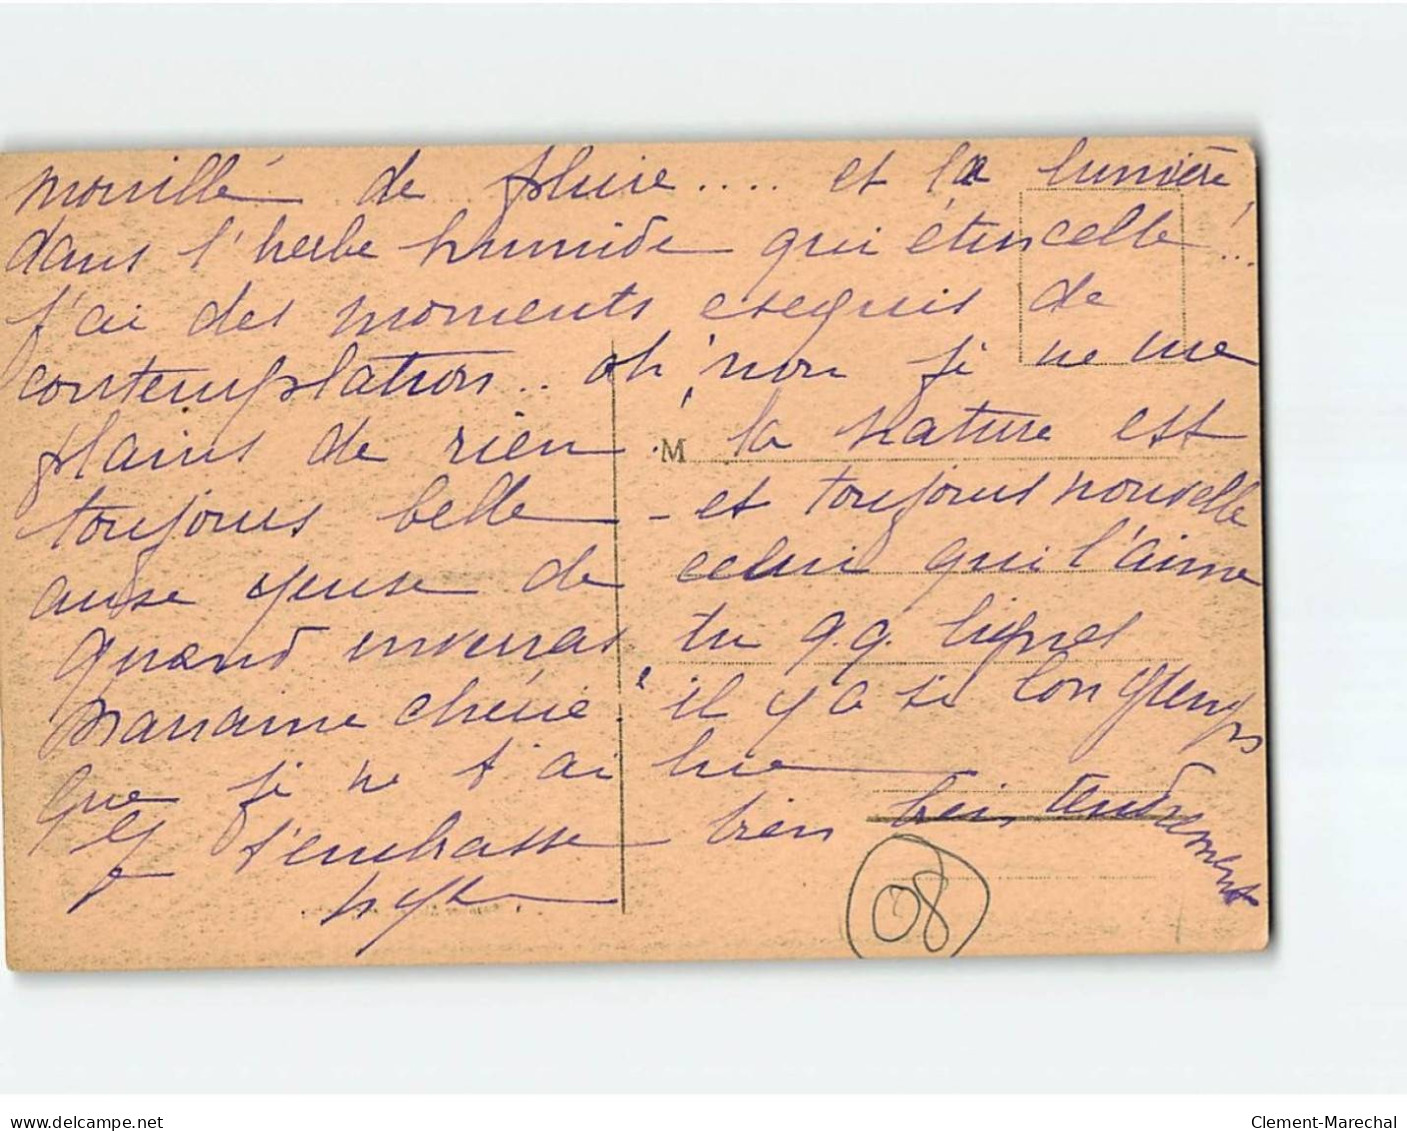 mouillé de pluie.... et la lumière
dans l'herbe humide qui étincelle!...
J'ai des moments exequis de
contemplation... oh! non je ne me
plains de rien. la nature est
M
toujours belle - et toujours nouvelle
aux yeux de celui qui l'aime
Quand enverras tu q.q. lignes
marraine chérie, il y a si longtemps
que je ne t'ai lue
Je t'embrasse bien bien tendrement
08
delcampe.net
Clement-Marechal